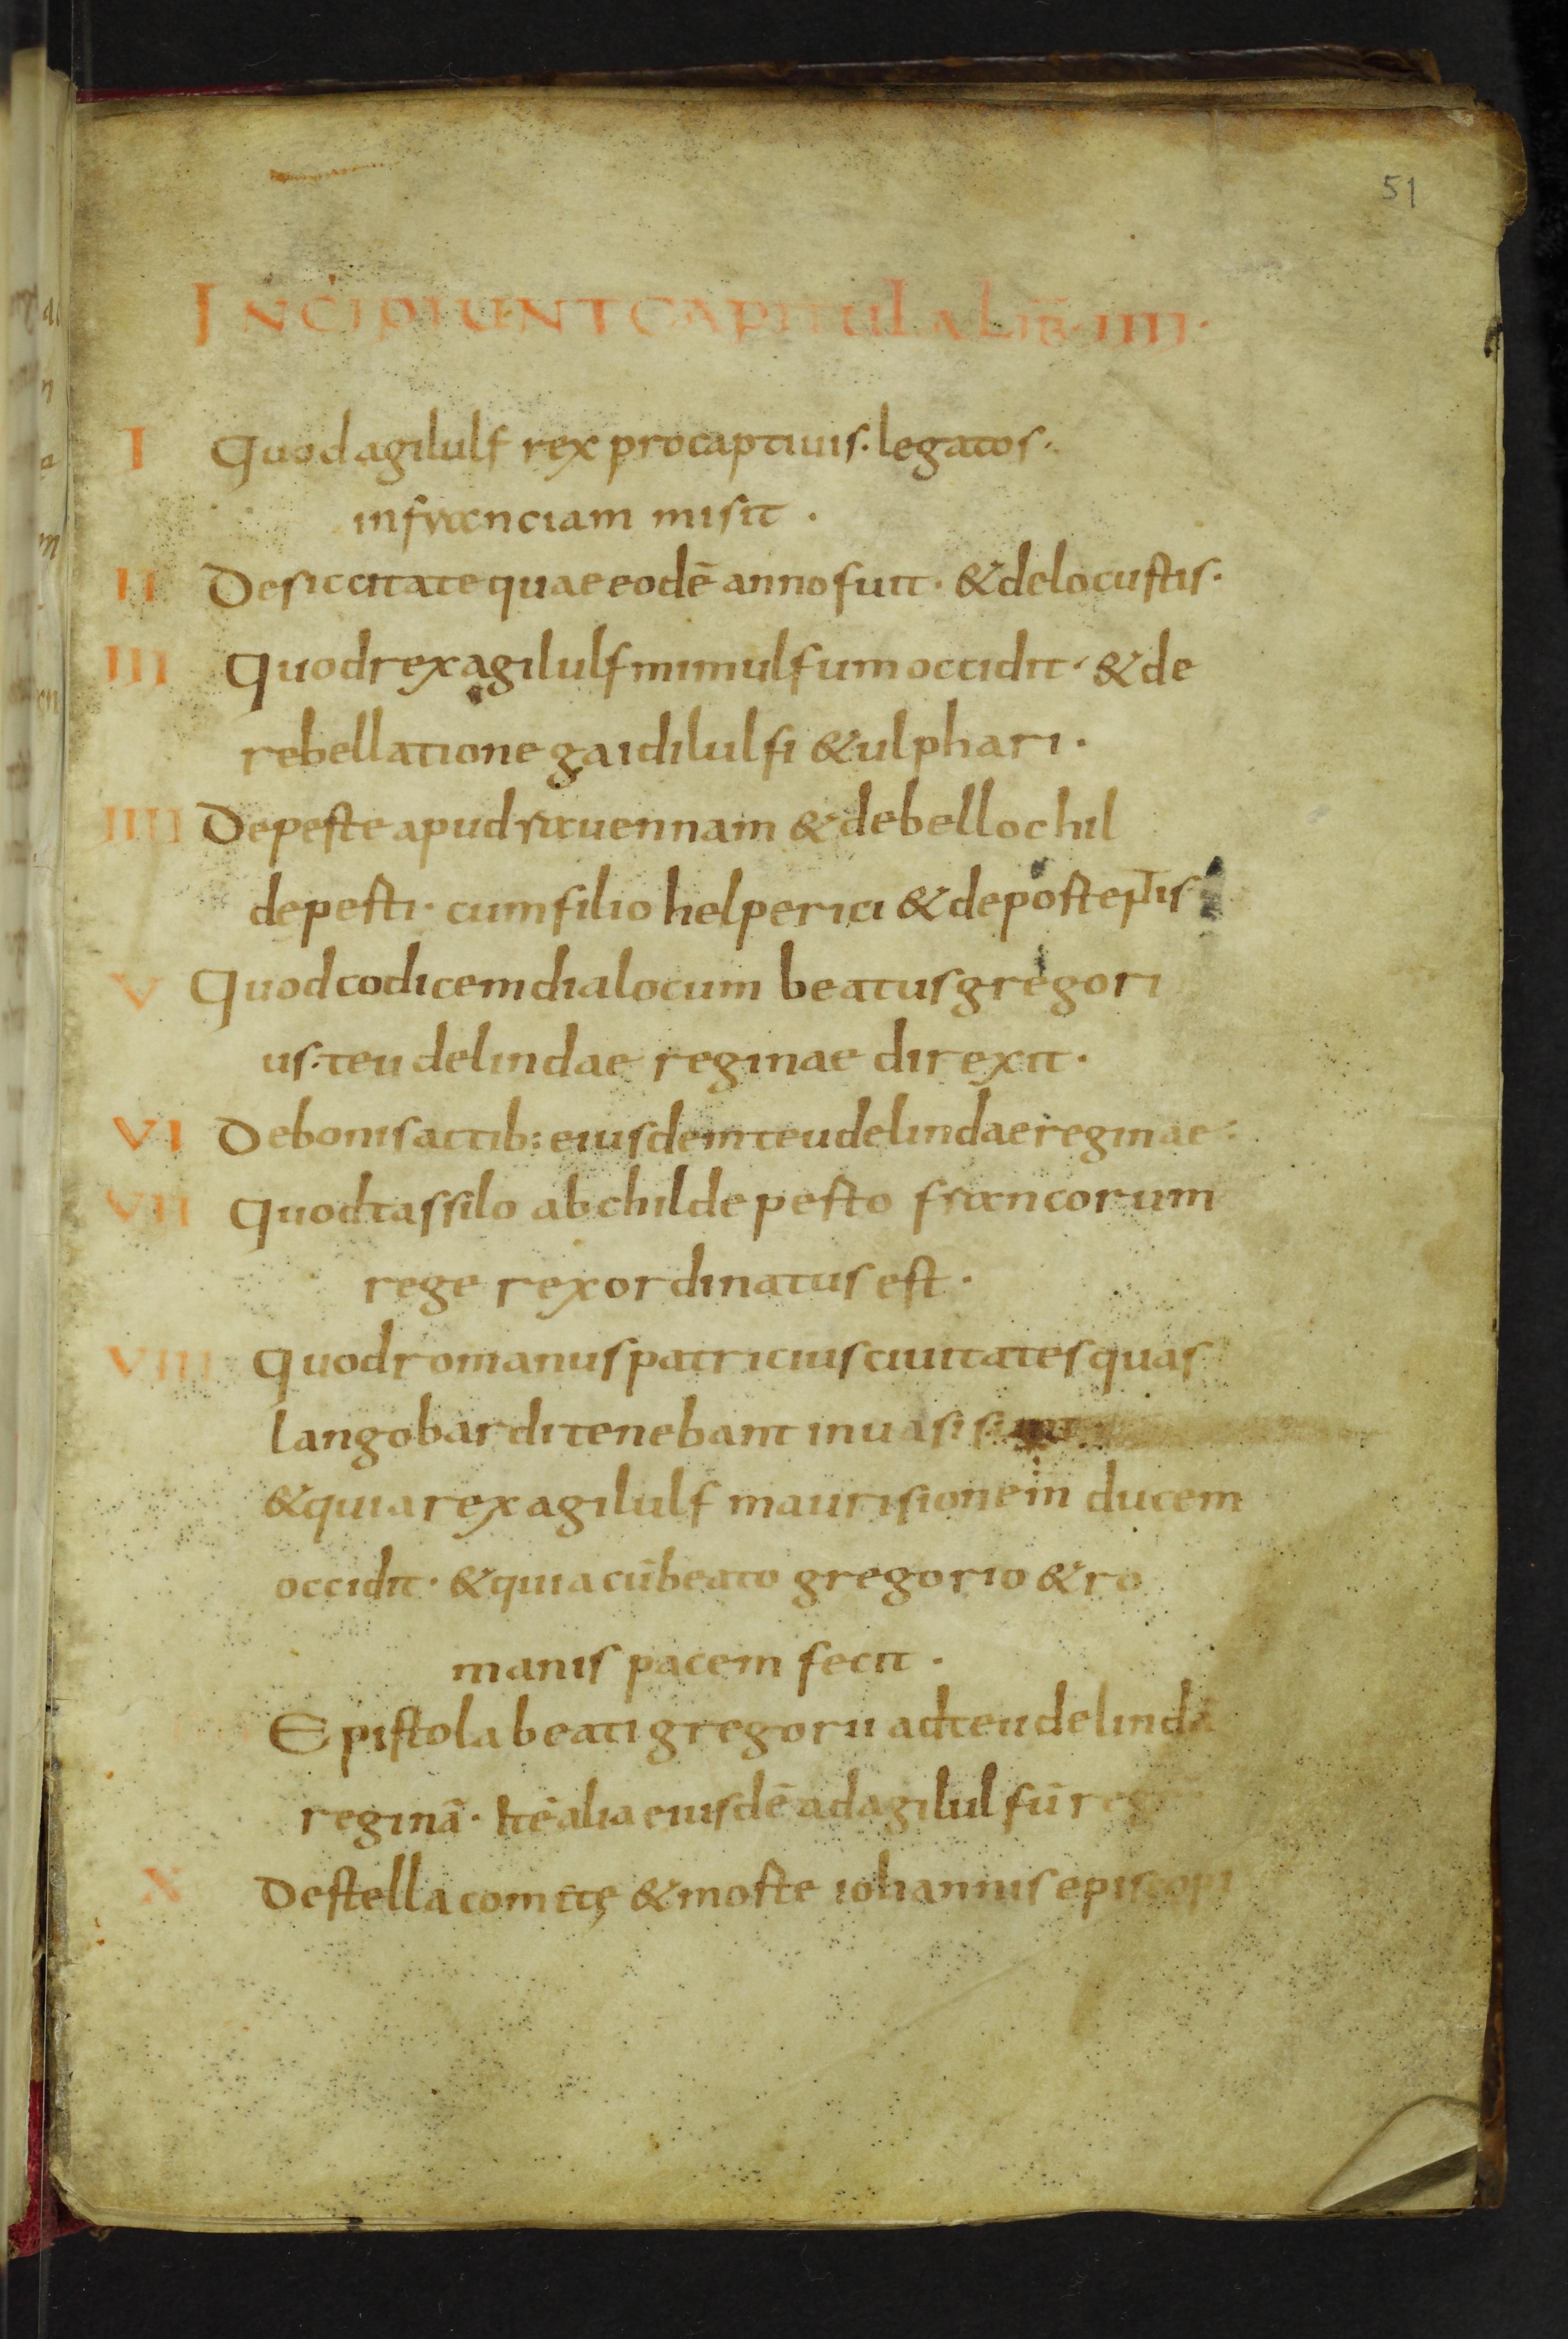 51
INCIPIUNT CAPITULA LIB̄. IIII.
I Quod agilulf rex pro captiuis. legatos.
in franciam misit .
II De siccitate quae eodē anno fuit. & de locustis.
III Quod rex agilulf mimulfum occidit. & de
rebellatione gaidilulfi & ulphari.
IIII De peste apud rauennam & de bello chil
depesti. cum filio helperici & de
V Quod codicem dialocum beatus gregori
us. teudelindae reginae direxit.
VI De bonis actib: eiusdem teudelindae reginae.
VII Quod tassilo ab childepesto francorum
rege rex ordinatus est.
VIII Quod romanus patricius ciuitates quas
langobardi tenebant
& quia rex agilulf maurisionem ducem
occidit. & quia cū beato gregorio & ro
manis pacem fecit .
Epistola beati gregorii ad teudelindā
reginā. Itē alia eiusdē ad agilulfū
X De stella comitę & moste iohannis episcopi